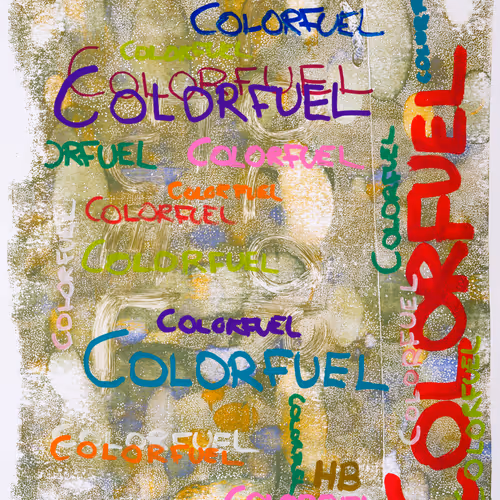 COLORFUEL
COLORFUEL
COLORFUEL
COLORFUEL
ORFUEL
COLORFUEL
COLORFUEL
COLORFUEL
COLORFUEL
COLORFUEL
COLORFUEL
COLORFUEL
COLORFUEL
HB
COLORFUEL
COLOR
COLORFUEL
COLORFUEL
COLORFUEL
COLORFUEL
COLORFUEL